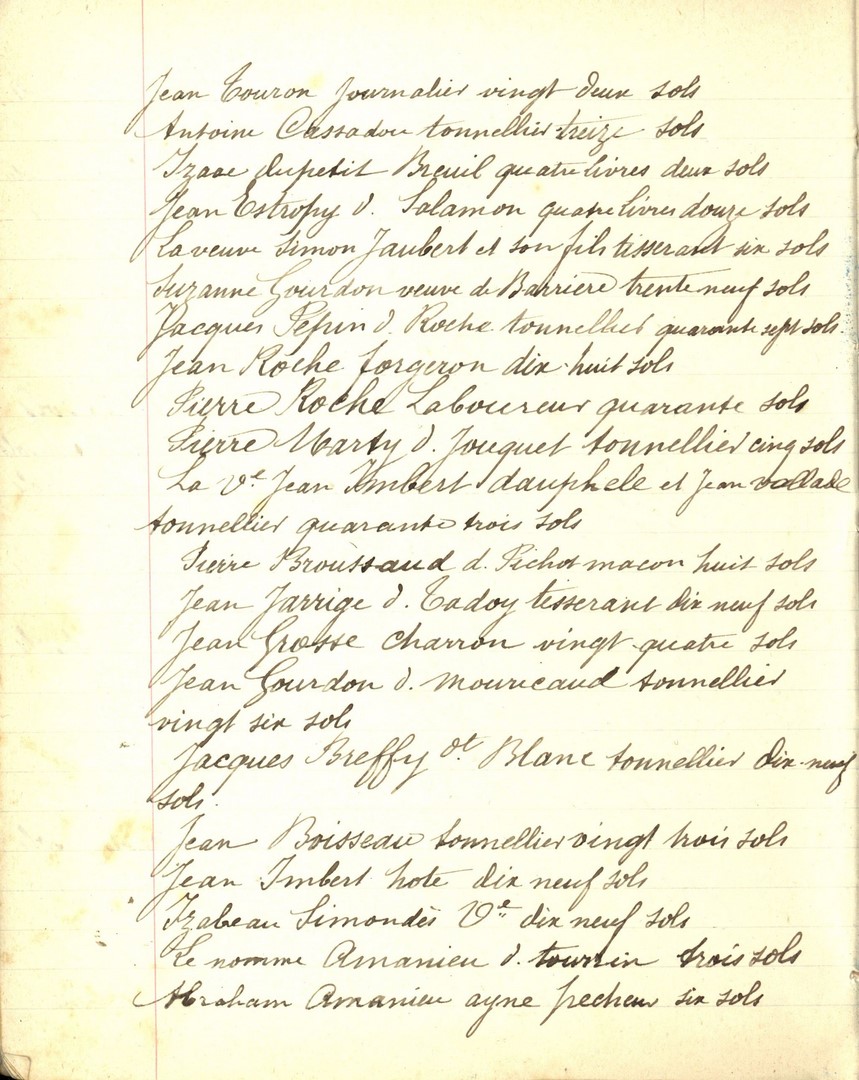 Jean Touron journalier vingt deux sols
Antoine Cassadou tonnellier treize sols
Izaac dupetit Breuil quatre livres deux sols
Jean Estropy d. Salamon quatre livres douze sols
La veuve Simon Jaubert et son fils tisserant six sols
Suzanne Gourdon veuve de Barriere trente neuf sols
Jacques Pepin d. Roche tonnellier quarante sept sols.
Jean Roche forgeron dix-huit sols
Pierre Roche Laboureur quarante sols
Pierre Marty d. Jouquet tonnellier cinq sols
La Ve. Jean Imbert dauphele et Jean vallade
tonnellier quarante trois sols
Pierre Broussaud d. Pichot macon huit sols
Jean Jarrige d. Tadoy tisserant dix neuf sols
Jean Grosse charron vingt-quatre sols
Jean Gourdon d. mouricaud tonnellier
vingt six sols
Jacques Breffy dt Blanc tonnellier dix-neuf
sols.
Jean Boisseau tonnellier vingt trois sols
Jean Imbert hote dix neuf sols
Izabeau Simondes Ve dix neuf sols
Le nomme Amanieu d. tourrin trois sols
Abraham Amanieu ayne pecheur six sols